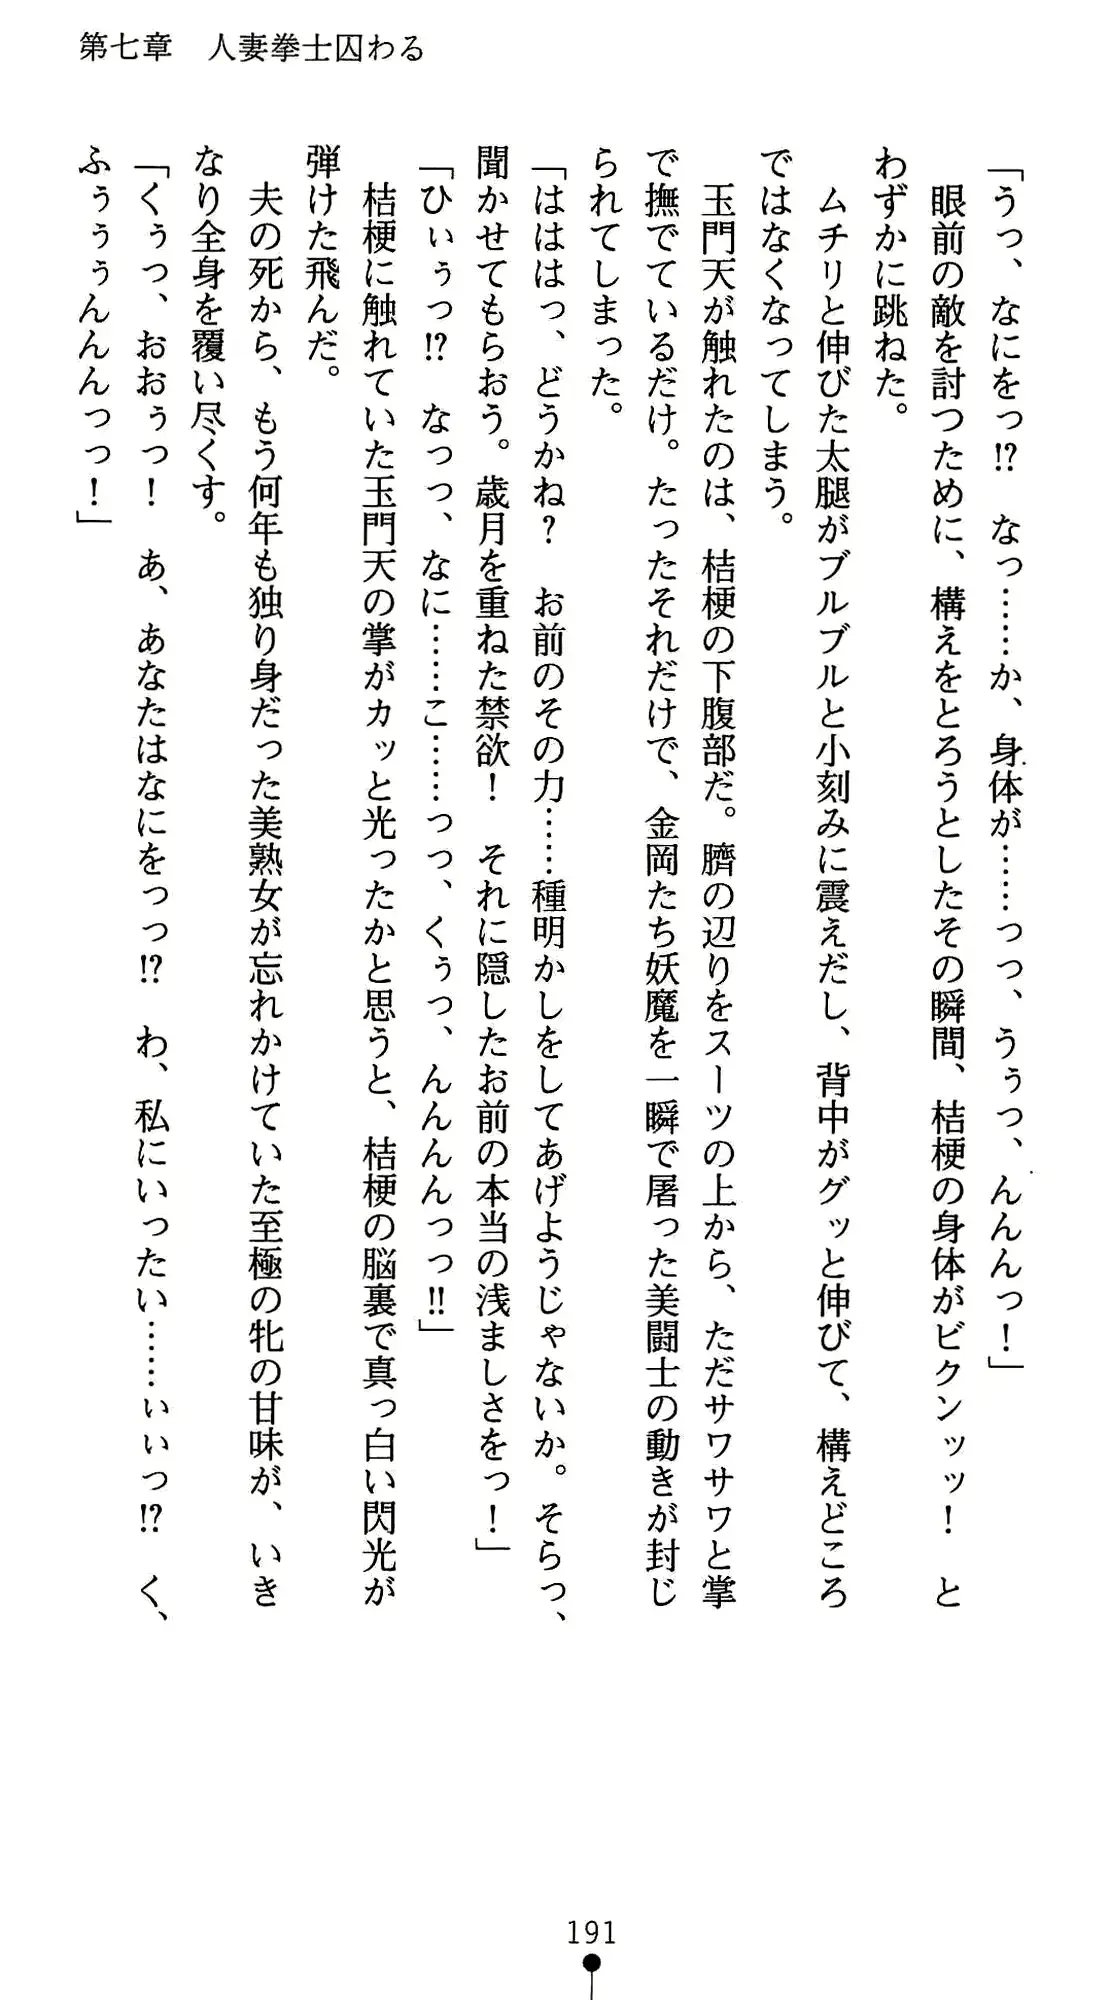 第七章　人妻拳士囚わる
「うっ、なにをっ!?　なっ……か、身体が……っっ、うぅっ、んんんっ！」
　眼前の敵を討つために、構えをとろうとしたその瞬間、桔梗の身体がビクンッッ！　と
わずかに跳ねた。
　ムチリと伸びた太腿がブルブルと小刻みに震えだし、背中がグッと伸びて、構えどころ
ではなくなってしまう。
　玉門天が触れたのは、桔梗の下腹部だ。臍の辺りをスーツの上から、ただサワサワと掌
で撫でているだけ。たったそれだけで、金岡たち妖魔を一瞬で屠った美闘士の動きが封じ
られてしまった。
「はははっ、どうかね？　お前のその力……種明かしをしてあげようじゃないか。そらっ、
聞かせてもらおう。歳月を重ねた禁欲！　それに隠したお前の本当の浅ましさをっ！」
「ひぃぅっ!?　なっっ、なに……こ……っっ、くぅっ、んんんんっっ!!」
　桔梗に触れていた玉門天の掌がカッと光ったかと思うと、桔梗の脳裏で真っ白い閃光が
弾けた飛んだ。
　夫の死から、もう何年も独り身だった美熟女が忘れかけていた至極の牝の甘味が、いき
なり全身を覆い尽くす。
「くぅっ、おおぅっ！　あ、あなたはなにをっっ!?　わ、私にいったい……ぃぃっ!?　く、
ふぅぅぅんんんっっ！」
191